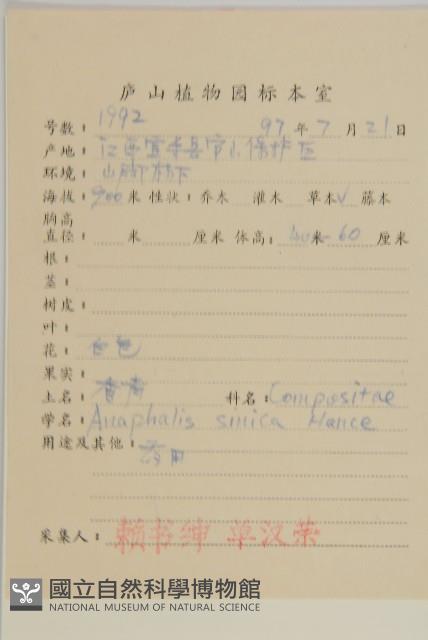 庐山植物园标本室
号数：1992 97年7月21日
产地：江西宜丰县官山保护区
环境：山脚林下
海拔：900米 性状：乔木 灌木 草本√ 藤本
胸高
直径： 米 厘米 体高： 40米-60 厘米
根：
茎：
树皮：
叶：
花：白色
果实：
土名：香青 科名：Compositae
学名：Anaphalis sinica Hance
用途及其他：药用
采集人：赖书绅 单汉荣
國立自然科學博物館
NATIONAL MUSEUM OF NATURAL SCIENCE